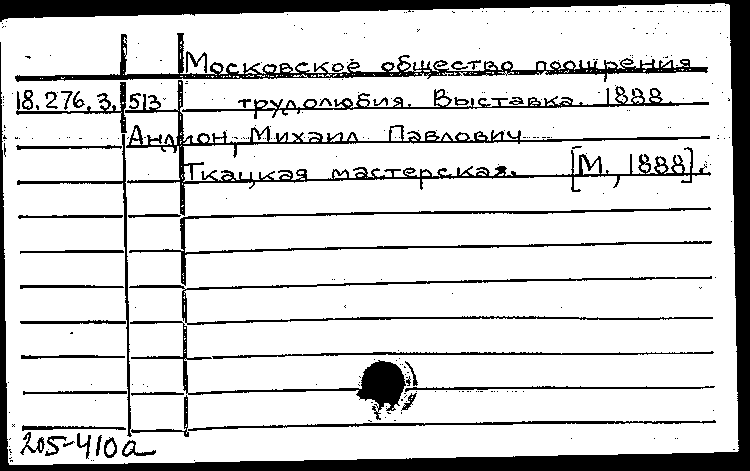 Московское общество поощрения
18.276.3.513 трудолюбия. Выставка. 1888.
Андион, Михаил Павлович
Ткацкая мастерская. [М., 1888].
205-410а